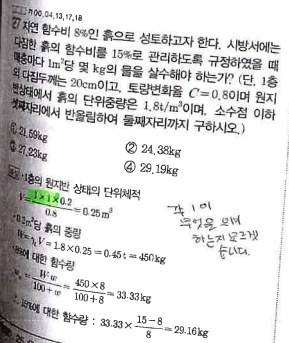 00,04,13,17,18
27 자연 함수비 8%인 흙으로 성토하고자 한다. 시방서에는
다짐한 흙의 함수비를 15%로 관리하도록 규정하였을 때
매층마다 1m²당 몇 kg의 물을 살수해야 하는가? (단, 1층
의 다짐두께는 20cm이고, 토량변화율 C=0.8이며 원지
반상태에서 흙의 단위중량은 1.8t/m³이며, 소수점 이하
셋째자리에서 반올림하여 둘째자리까지 구하시오.)
① 21.59kg ② 24.38kg
③ 27.23kg ④ 29.19kg
•1층의 원지반 상태의 단위체적
V= 1×1×0.2 / 0.8 = 0.25 m³
각 1이
무엇을 의미
하는지 모르겠
습니다.
당 흙의 중량
V=1.8×0.25=0.45t=450kg
대한 함수량
= 450×8 / 100+8 = 33.33kg
15%에 대한 함수량 : 33.33× 15-8 / 8 =29.16kg